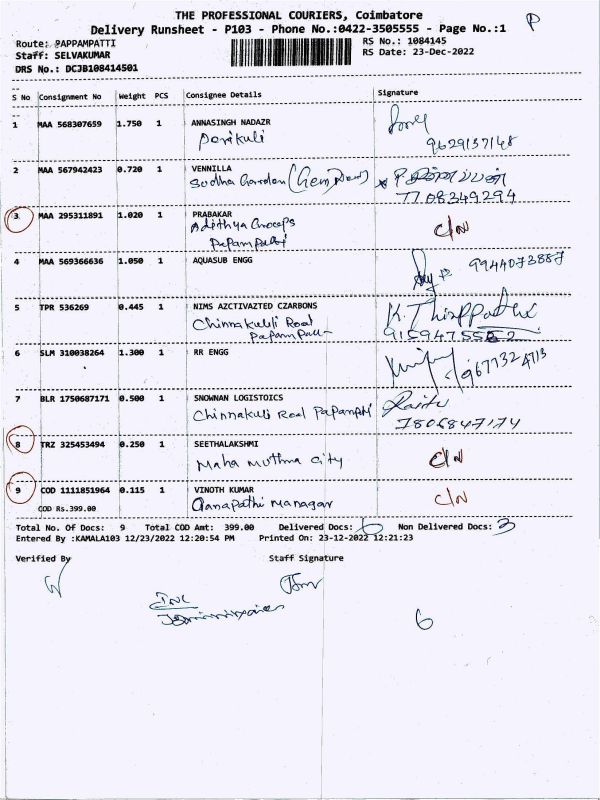 THE PROFESSIONAL COURIERS, Coimbatore
P
Delivery Runsheet - P103 - Phone No.:0422-3505555 - Page No.:1
Route: PAPPAMPATTI
RS No.: 1084145
Staff: SELVAKUMAR
RS Date: 23-Dec-2022
DRS No.: DCJB108414501
S No Consignment No Weight PCS Consignee Details Signature
1 MAA 568307659 1.750 1 ANNASINGH NADAZR
9629137148
2 MAA 567942423 0.720 1 VENNILLA
Sudha Garden
7708349294
3 MAA 295311891 1.020 1 PRABAKAR
Adithya C/N
4 MAA 569366636 1.050 1 AQUASUB ENGG
9944073887
5 TPR 536269 0.445 1 NIMS AZCTIVAZTED CZARBONS
Road
6 SLM 310038264 1.300 1 RR ENGG
7 BLR 1750687171 0.500 1 SNOWNAN LOGISTOICS
Road
7806847174
8 TRZ 325453494 0.250 1 SEETHALAKSHMI
Maha Muthma City C/N
9 COD 1111851964 0.115 1 VINOTH KUMAR
COD Rs.399.00 Ganapathi Managar C/N
Total No. Of Docs: 9 Total COD Amt: 399.00 Delivered Docs: 6 Non Delivered Docs: 3
Entered By :KAMALA103 12/23/2022 12:20:54 PM Printed On: 23-12-2022 12:21:23
Verified By Staff Signature
6